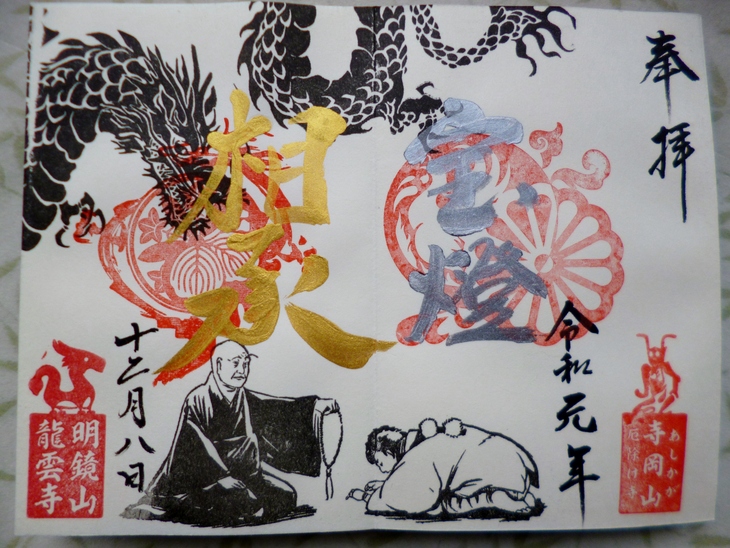 奉拝
宝燈
相承
令和元年
十二月八日
あしかが
寺岡山
厄除け寺
明鏡山
龍雲寺